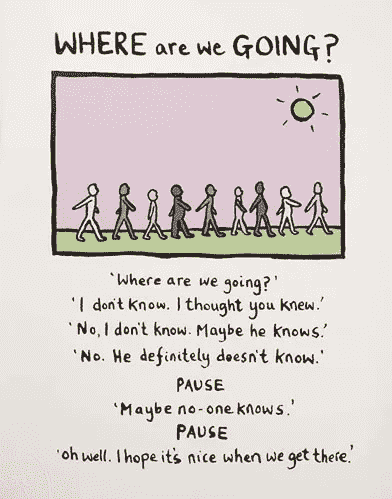 WHERE are we GOING?
'Where are we going?'
'I don't know. I thought you knew.'
'No, I don't know. Maybe he knows.'
'No. He definitely doesn't know.'
PAUSE
'Maybe no-one knows.'
PAUSE
'oh well. I hope it's nice when we get there.'